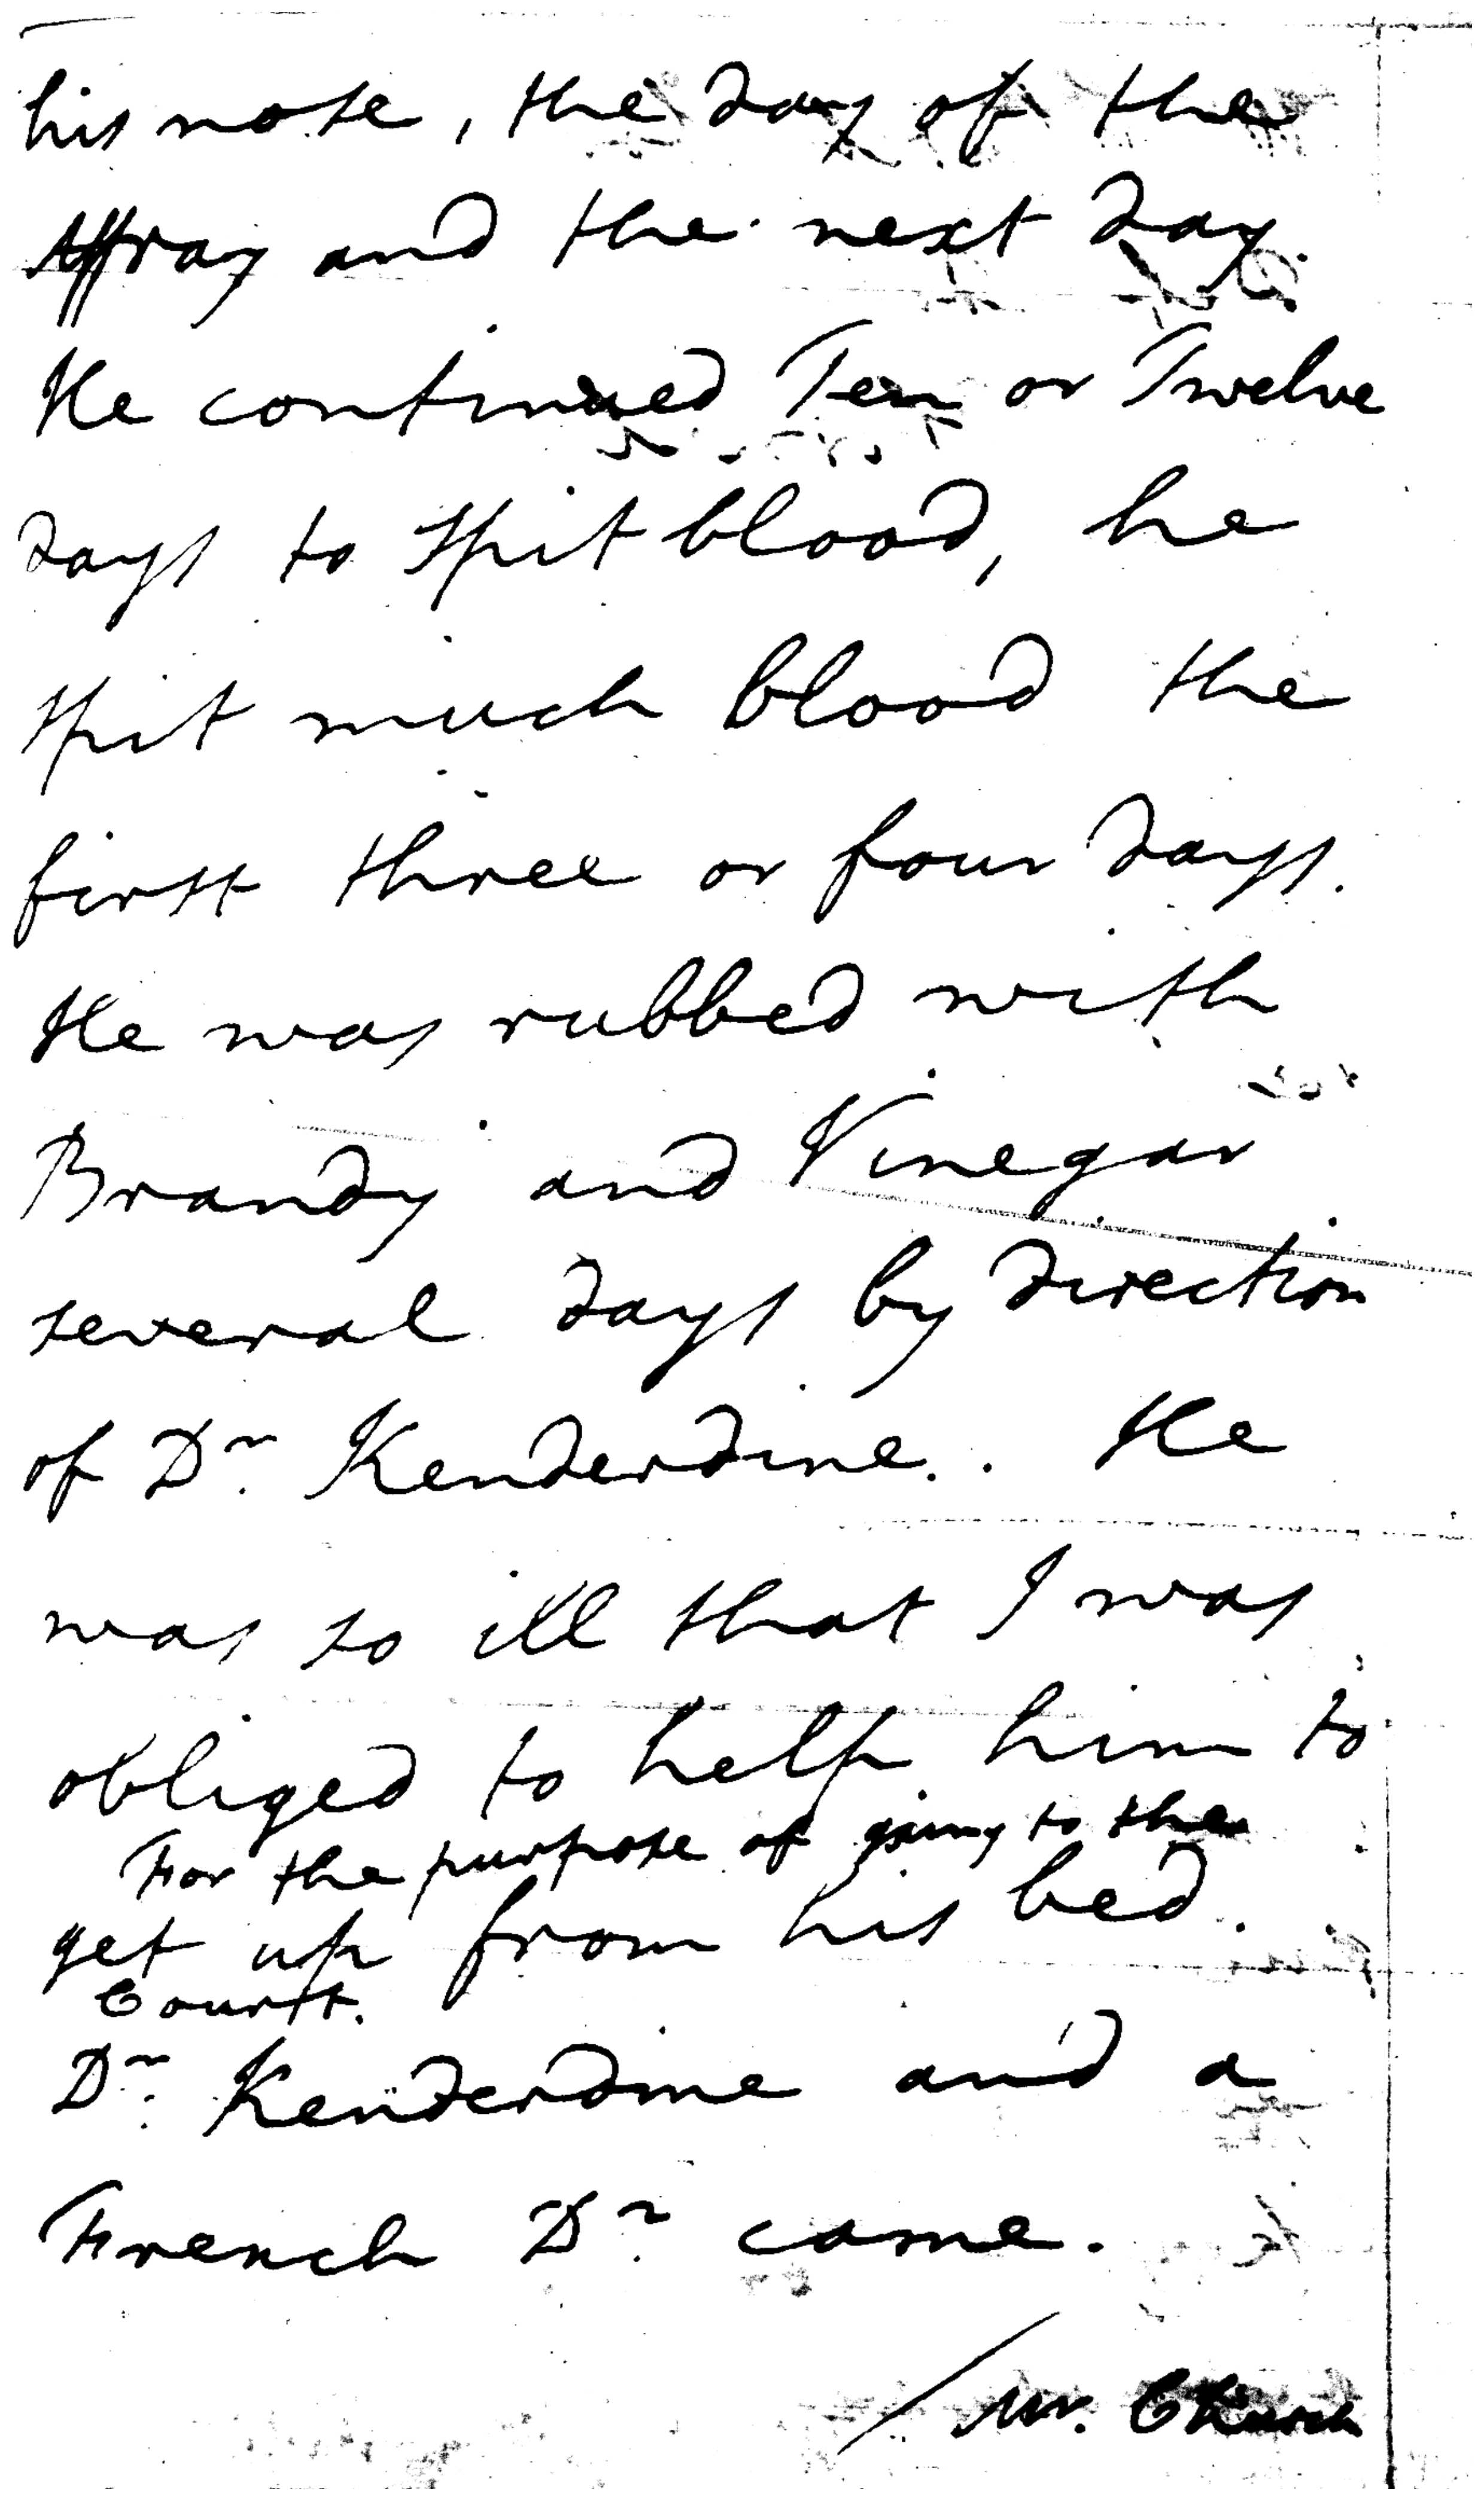 his nose, the day of the
Affray and the next day.
He continued Ten or Twelve
days to spit blood, he
spit much blood the
first three or four days.
He was rubbed with
Brandy and Vinegar
several days by direction
of Dr. Kenderdine. He
was so ill that I was
obliged to help him to
For the purpose of going to the
get up from his bed.
Court.
Dr. Kenderdine and a
French Dr. came.
/Mr. Church